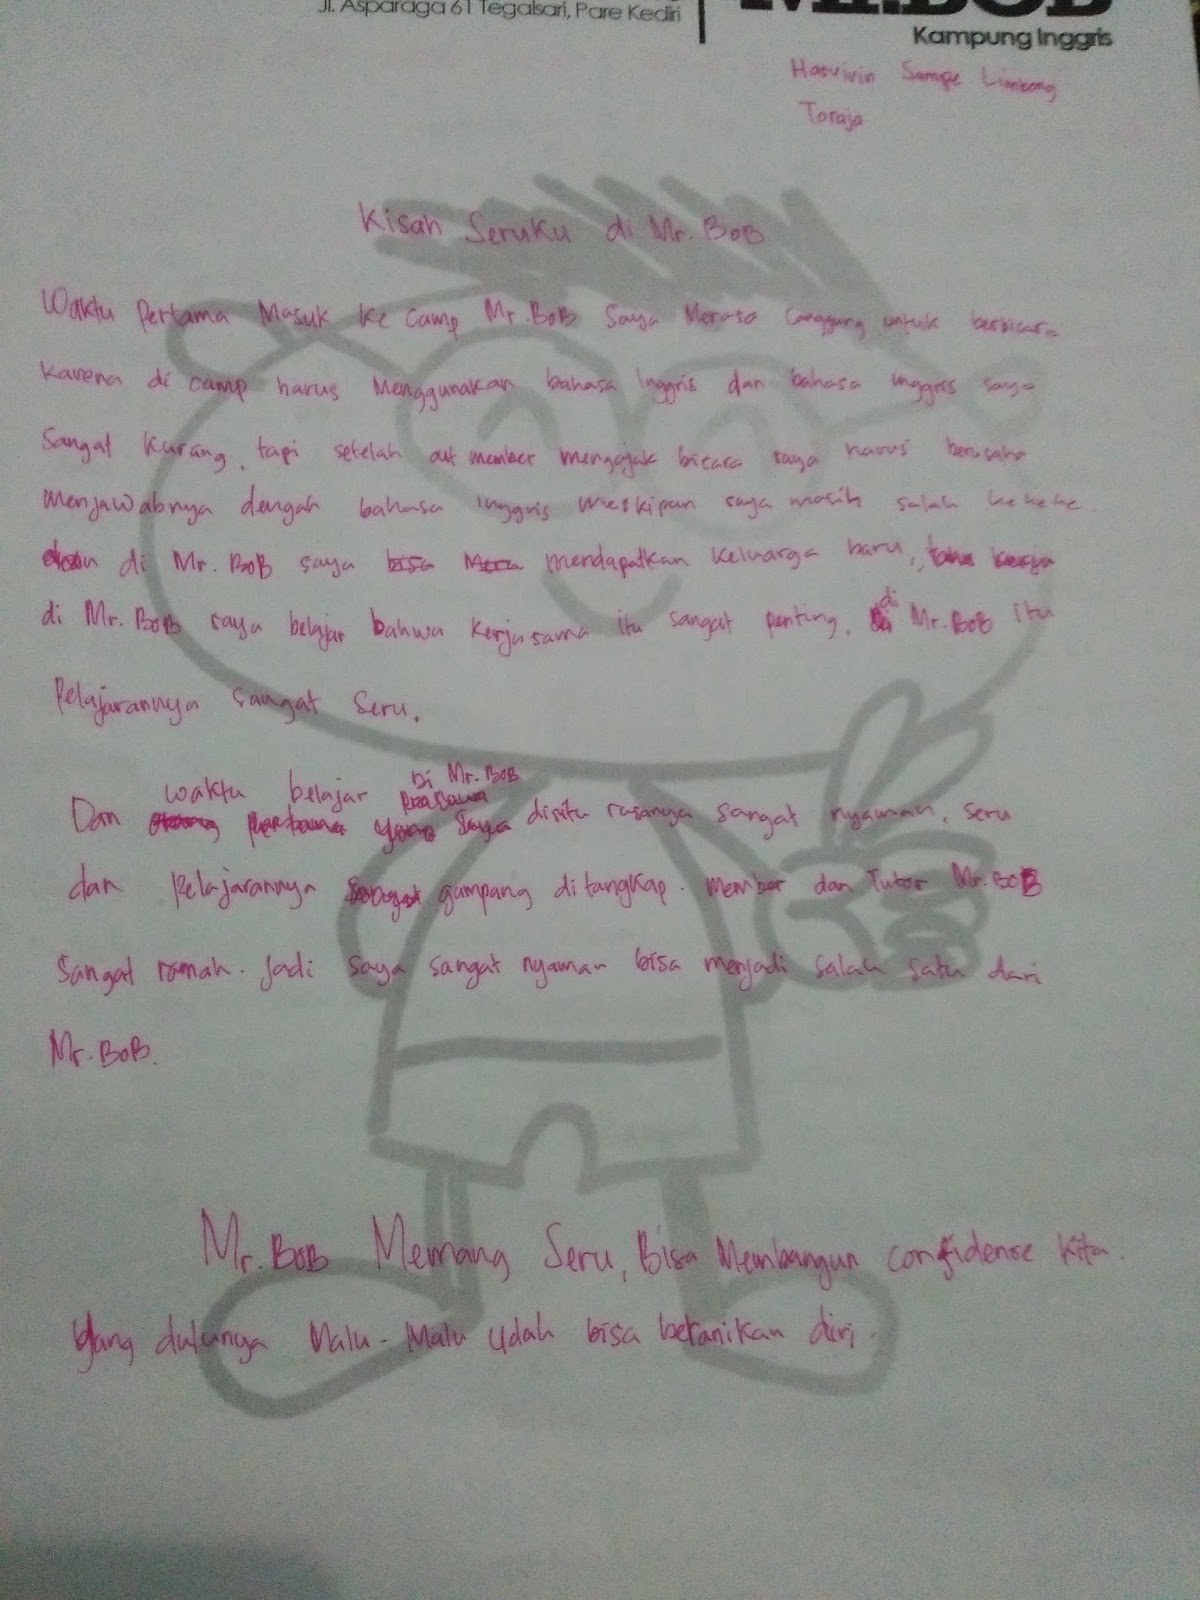 Jl. Asparaga 61 Tegalsari, Pare Kediri
Mr.BOB
Kampung Inggris
Sampe Limbong
Toraja
Kisah Seruku di Mr. BOB
Waktu Pertama Masuk ke camp Mr.BOB Saya Merasa canggung untuk berbicara
karena di camp harus Menggunakan bahasa Inggris dan bahasa Inggris saya
Sangat kurang, tapi setelah out member mengajak bicara saya harus berusaha
menjawabnya dengah bahasa Inggris meskipun saya masih salah hehehe.
di Mr. BOB saya bisa mendapatkan keluarga baru,
di Mr. BOB saya belajar bahwa kerjasama itu sangat penting, di Mr.BOB itu
Pelajarannya sangat Seru.
waktu belajar Di Mr. BOB
Dan disitu rasanya sangat nyaman, seru
dan Pelajarannya sangat gampang ditangkap. member dan Tutor Mr.BOB
Sangat ramah. Jadi saya sangat nyaman bisa menjadi salah satu dari
Mr.BOB.
Mr.BOB Memang Seru, Bisa Membangun confidense kita.
Yang dulunya Malu-Malu udah bisa beranikan diri.